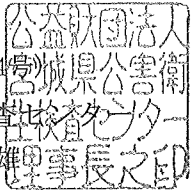 公益財団法人
号)
宮城県公害衛
生検査センター
査センター
理事長之印